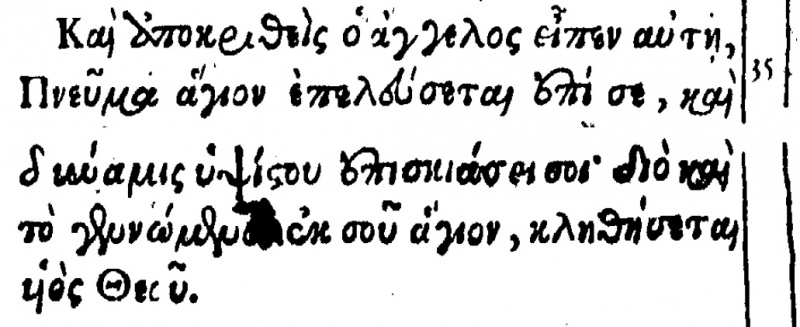 Καὶ ἀποκριθεὶς ὁ ἄγγελος εἶπεν αὐτῇ,
Πνεῦμα ἅγιον ἐπελεύσεται ἐπί σε, καὶ 35
δύναμις ὑψίστου ἐπισκιάσει σοι· διὸ καὶ
τὸ γεννώμενον ἐκ σοῦ ἅγιον, κληθήσεται
υἱὸς Θεοῦ.